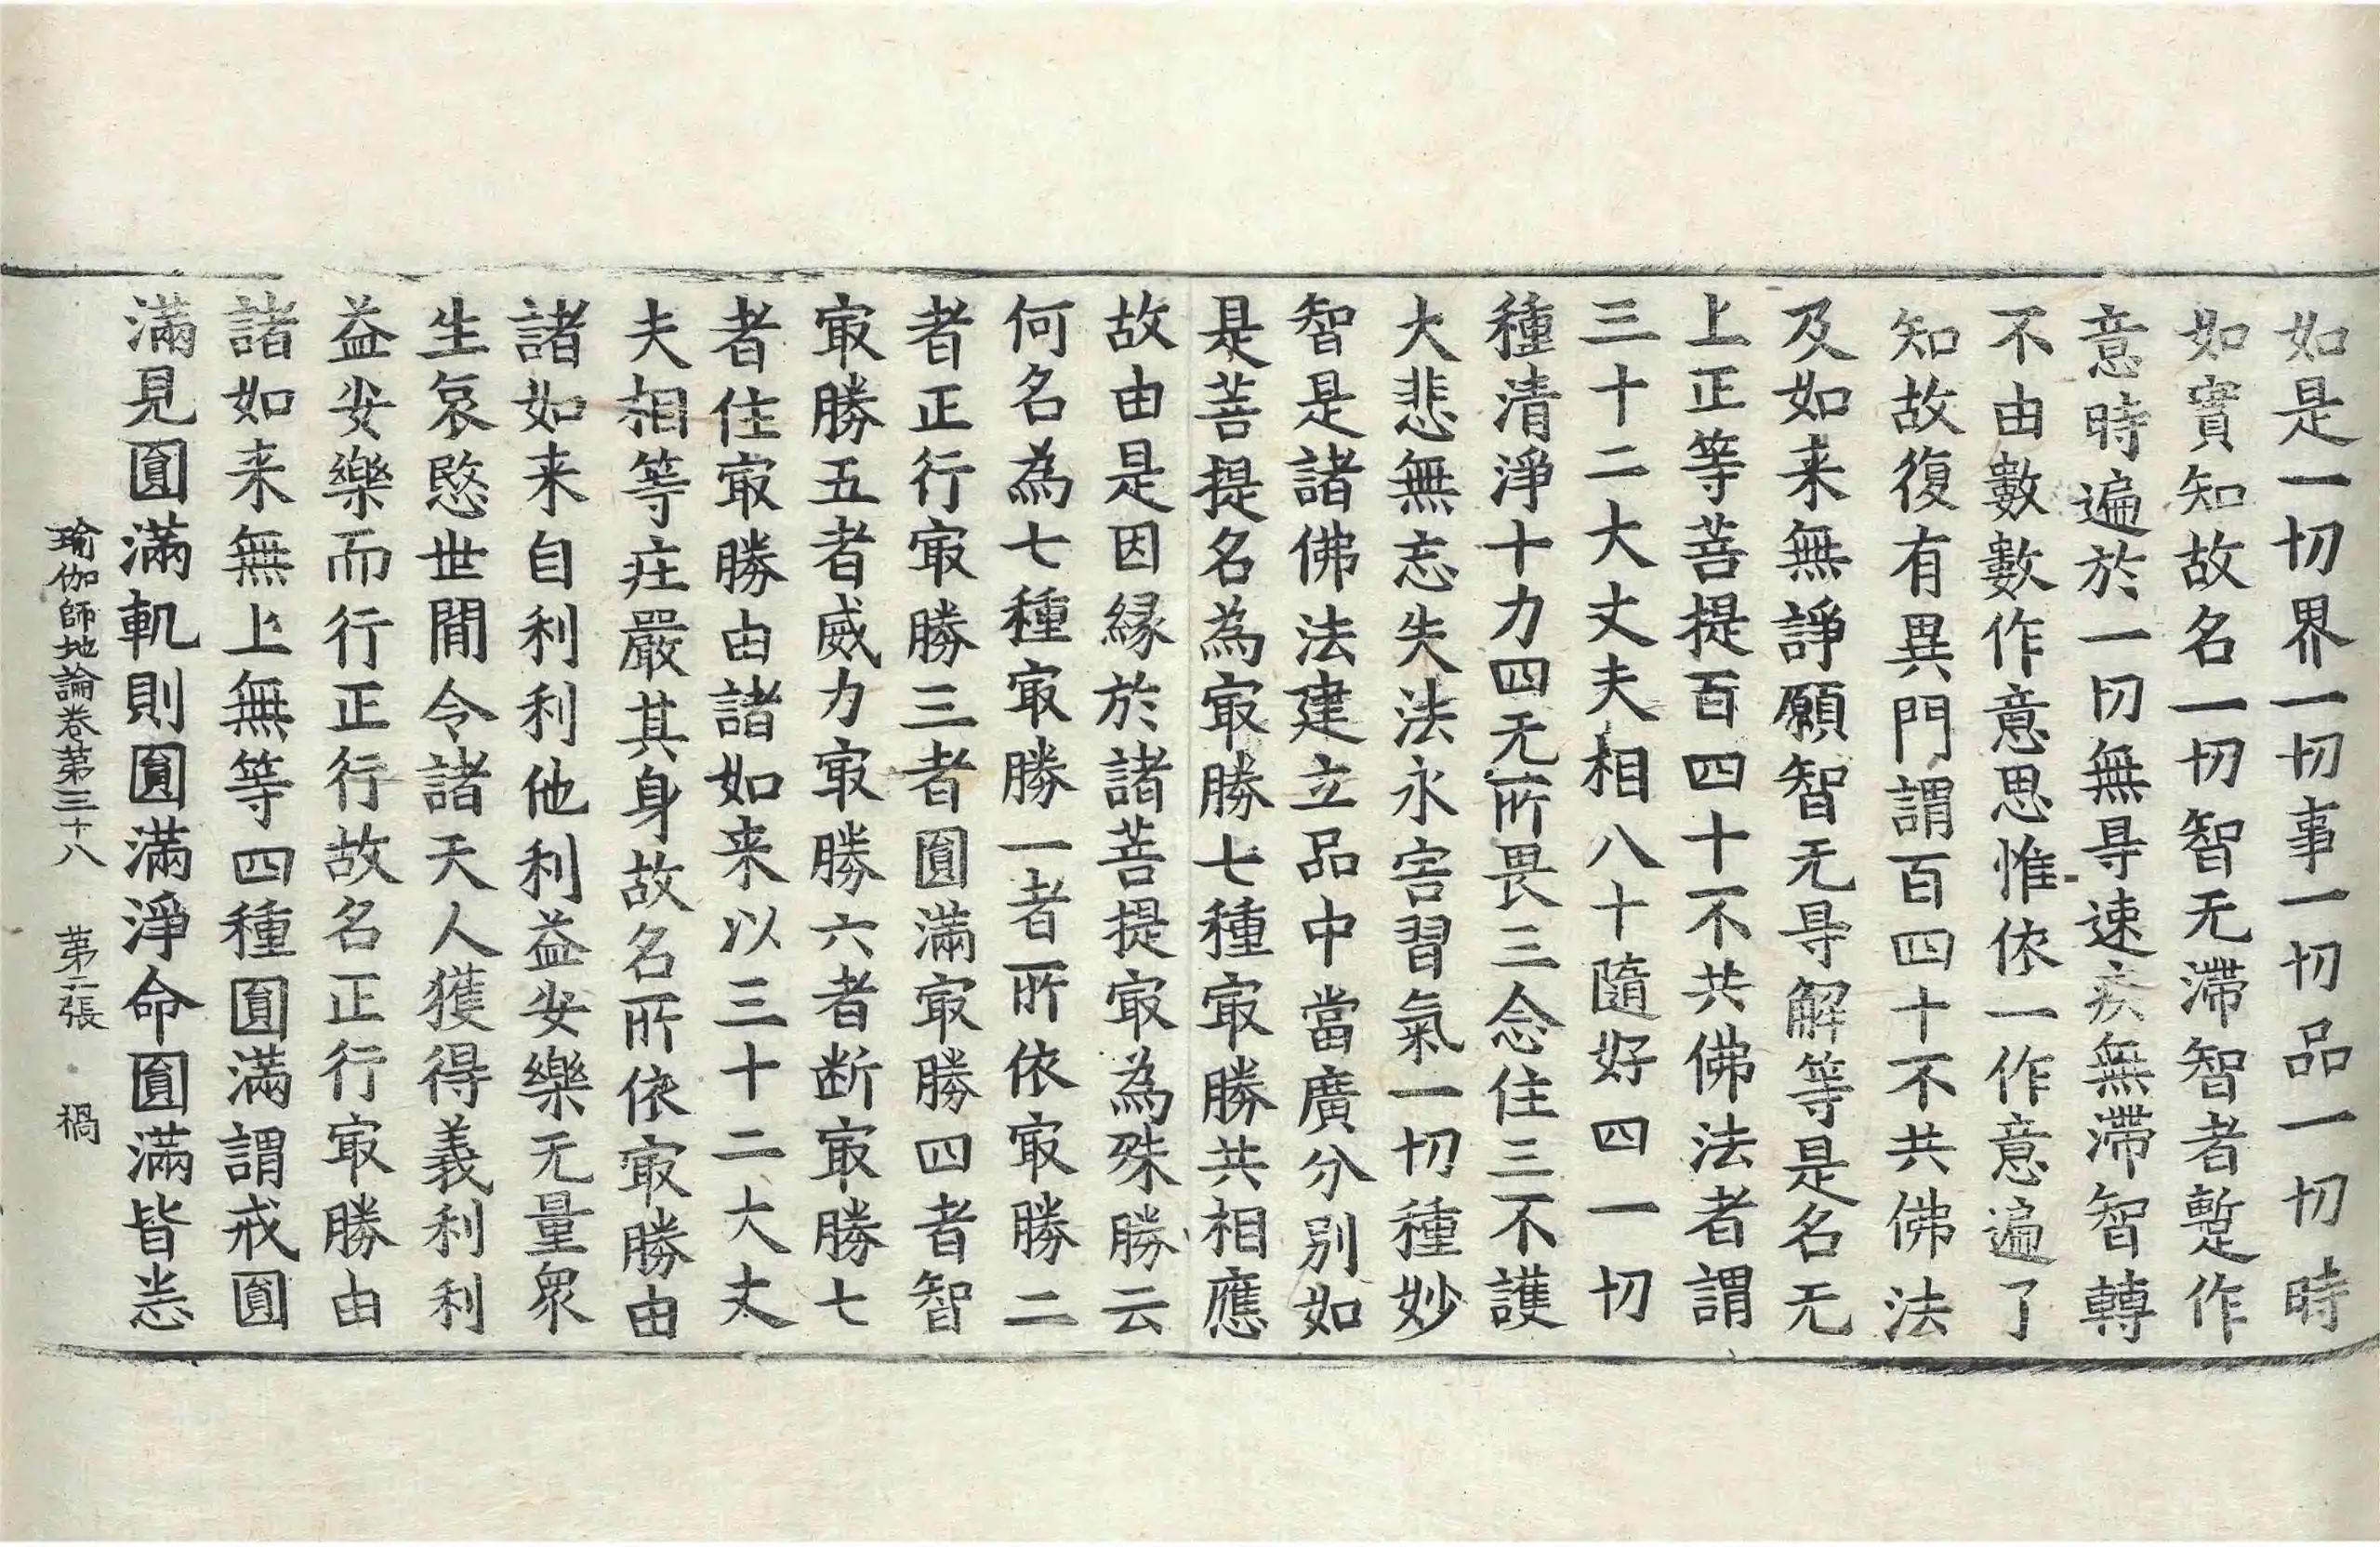 如是一切界一切事一切品一切時
如實知故名一切智无滯智者蹔作
意時遍於一切無㝵速疾無滯智轉
不由數數作意思惟依一作意遍了
知故復有異門謂百四十不共佛法
及如来無諍願智无㝵解等是名无
上正等菩提百四十不共佛法者謂
三十二大丈夫相八十隨好四一切
種清淨十力四无所畏三念住三不護
大悲無忘失法永害習氣一切種妙
智是諸佛法建立品中當廣分別如
是菩提名為㝡勝七種㝡勝共相應
故由是因緣於諸菩提㝡為殊勝云
何名為七種㝡勝一者所依㝡勝二
者正行㝡勝三者圎滿㝡勝四者智
㝡勝五者威力㝡勝六者断㝡勝七
者住㝡勝由諸如来以三十二大丈
夫相等庄嚴其身故名所依㝡勝由
諸如来自利利他利益安樂无量衆
生哀愍世間令諸天人獲得義利利
益安樂而行正行故名正行㝡勝由
諸如来無上無等四種圎滿謂戒圎
滿見圎滿軌則圎滿淨命圎滿皆悉
瑜伽師地論卷苐三十八 苐二張 禍